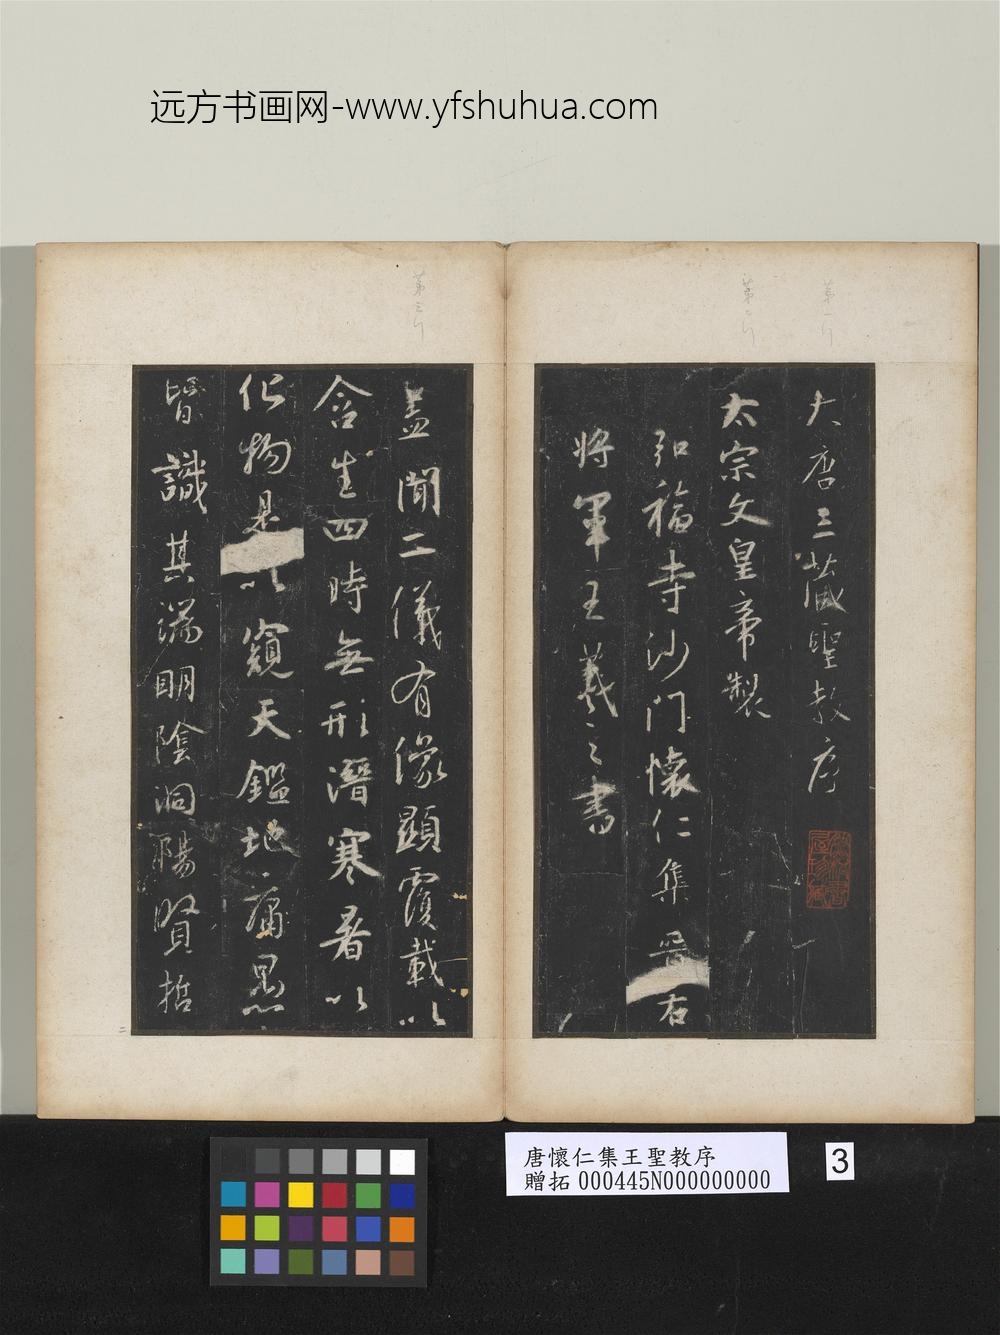 远方书画网-www.yfshuhua.com
第一行
第二行
第三行
大唐三藏聖教序
太宗文皇帝製
弘福寺沙門懷仁集晉右
將軍王羲之書
蓋聞二儀有像顯覆載以
含生四時無形潛寒暑以
化物是以窺天鑑地庸愚
皆識其端明陰洞陽賢哲
二
唐懷仁集王聖教序
贈拓 000445N000000000
3